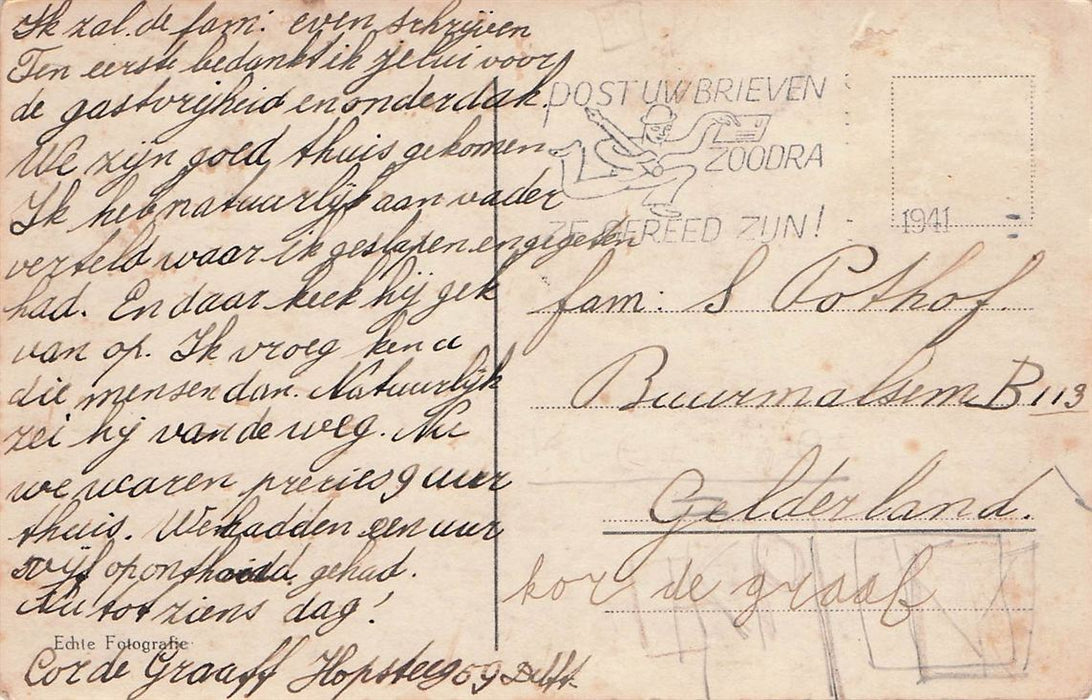 Ik zal de fam: even schrijven
Ten eerste bedankt ik jelui voor
de gastvrijheid en onderdak.
We zijn goed thuis gekomen
Ik heb natuurlijk aan vader
verteld waar ik geslapen en gegeten
had. En daar keek hij gek
van op. Ik vroeg ken u
die mensen dan. Natuurlijk
zei hij van de weg. Nu
we waren precies 9 uur
thuis. We hadden een uur
oponthoud gehad.
Nu tot ziens dag!
Echte Fotografie
Cor de Graaff Hopsteeg 59 Delft
POST UW BRIEVEN
ZOODRA
ZE GEREED ZIJN!
1941
fam: S Pothof.
Buurmalsem B 113
Gelderland.
kor de graaf